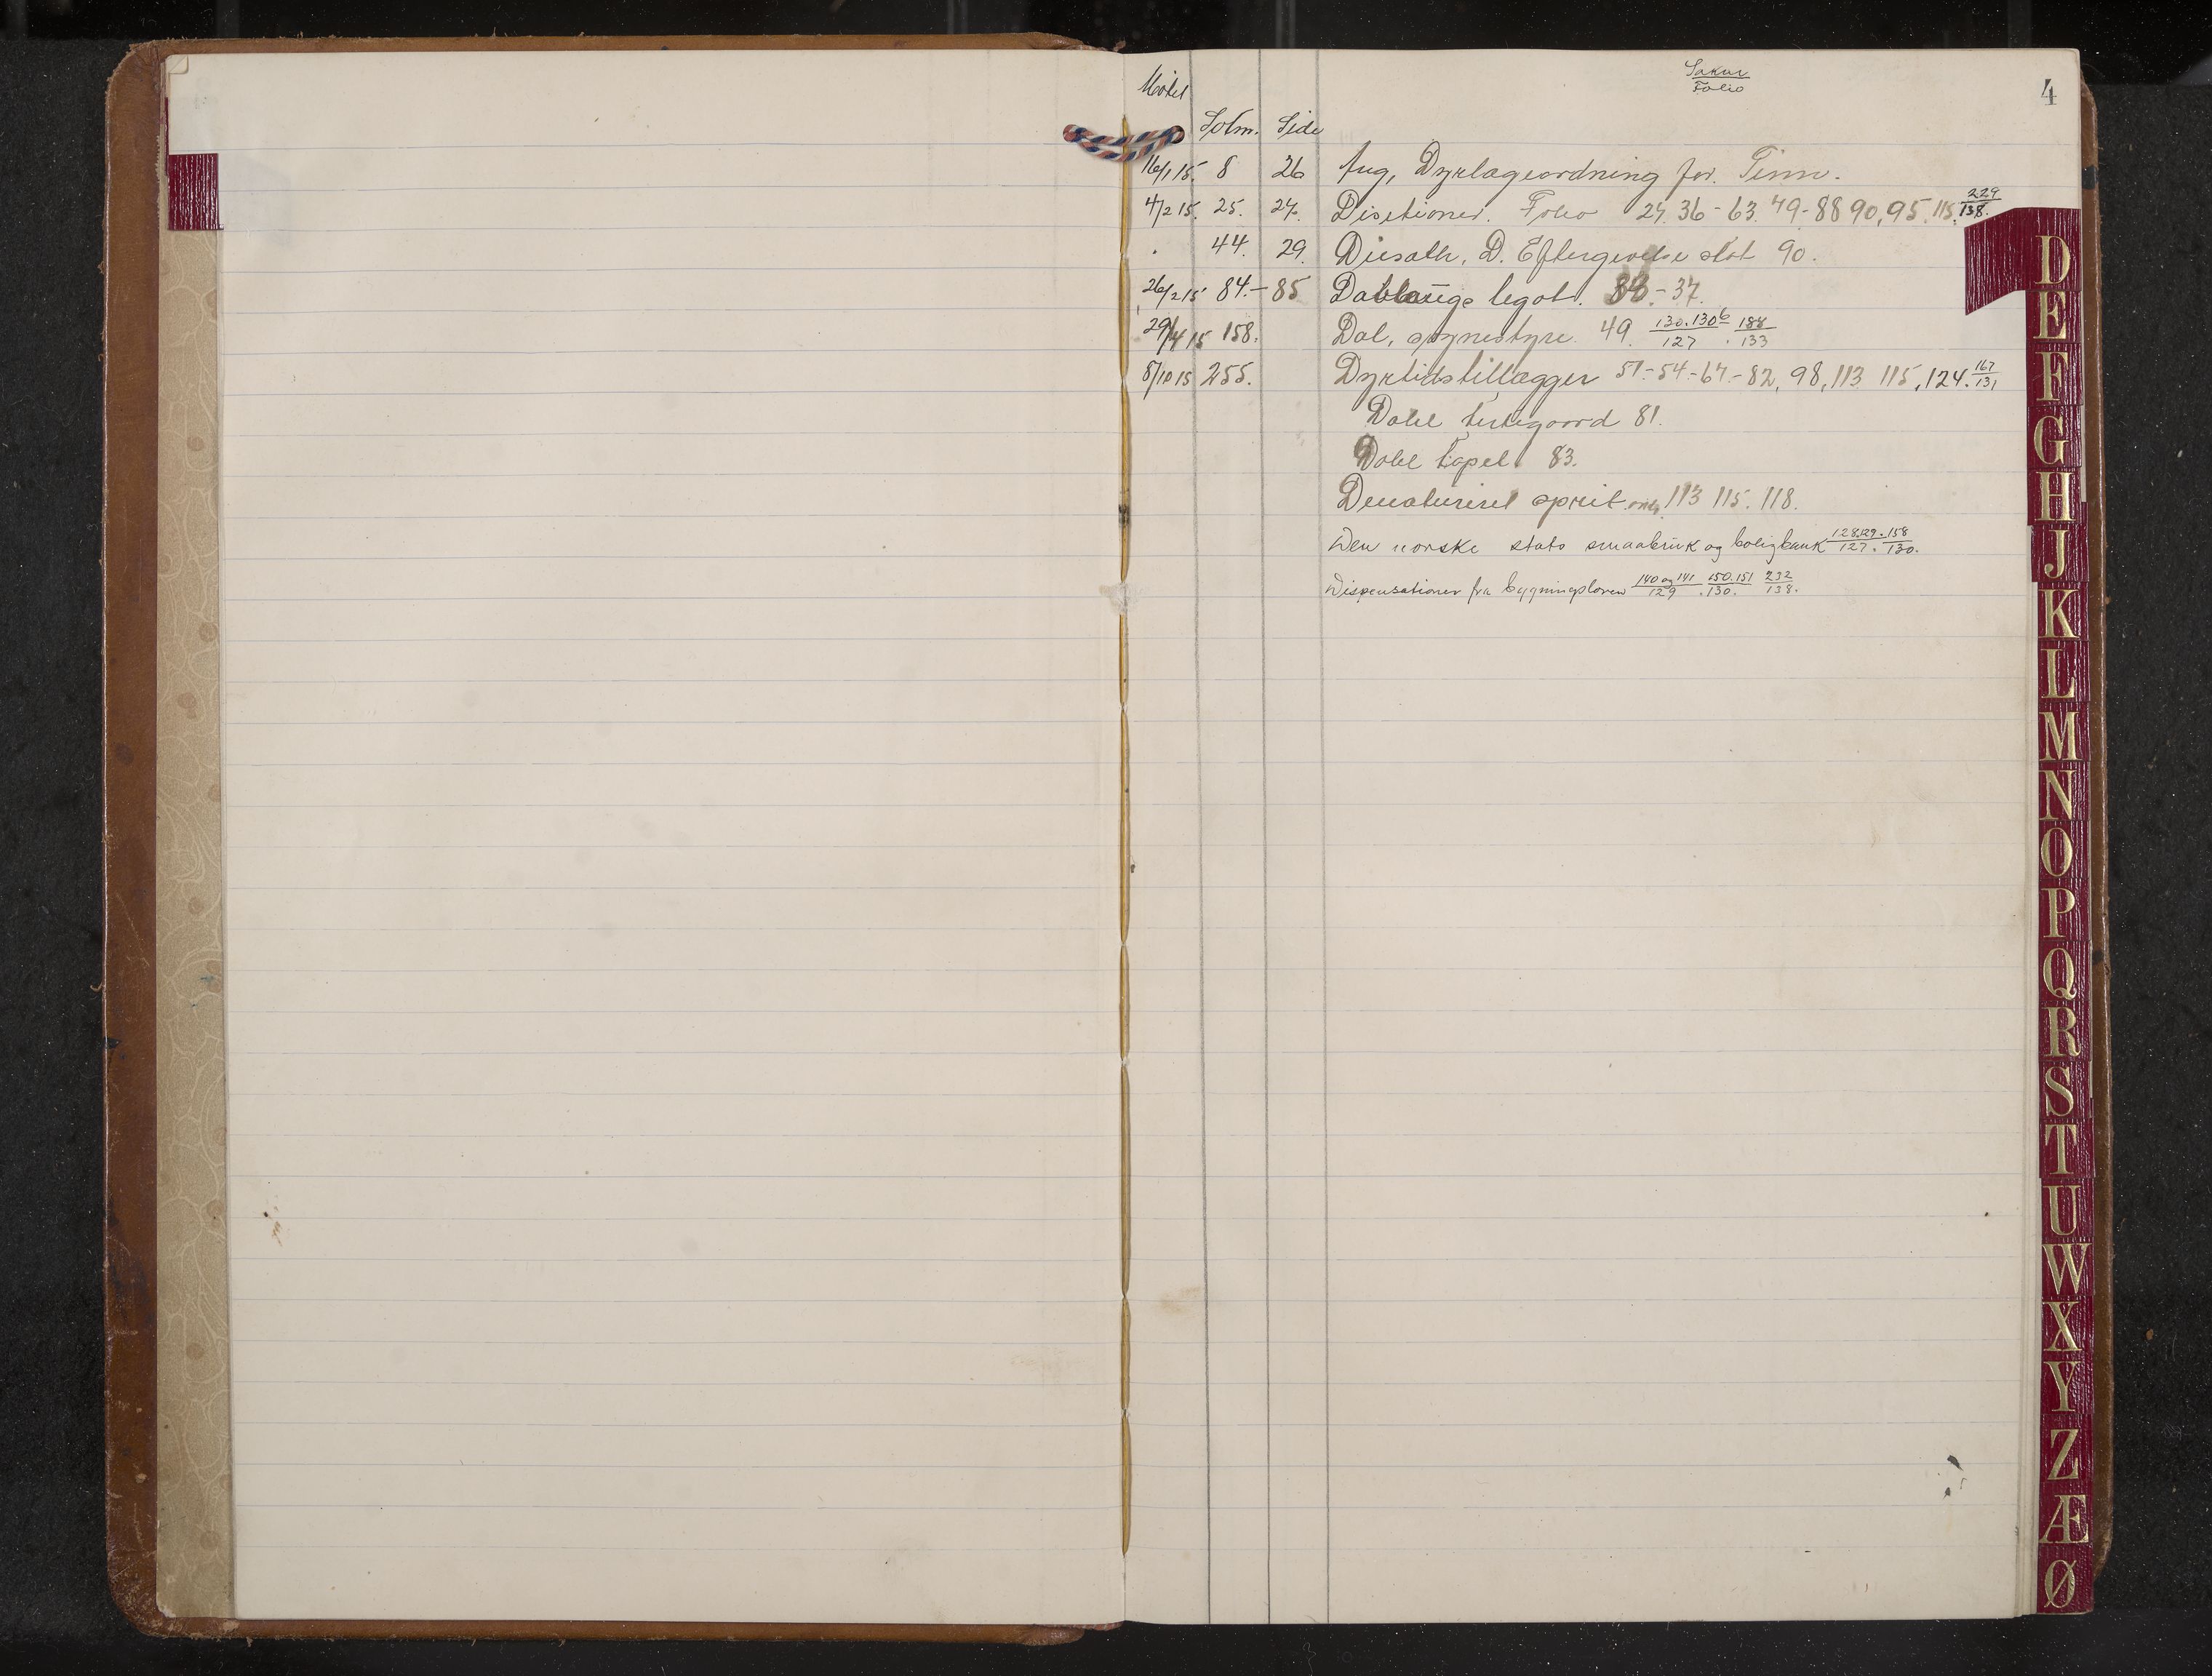 Møtet
Saknr
Folio
4
Side
16/1 15. 8 26 Ang, Dyrlægeordning for Tinn.
4/2 15. 25. 24. Folio 24. 36 - 63. 79 - 88 90, 95. 115. 229/138.
. 44. 29. D. Eftergivelse skat 90.
26/2 15 84. - 85 legat. - 37.
29/4 15 158. Dal, sognestyre. 49. 130.130b/127 . 188/133
8/10 15 255. Dyrtidstillægger 51 - 54 - 67 - 82, 98, 113 115, 124. 167/131
Dahl kirkegaard 81.
Dahl kapel. 83.
Denaturert sprit 113 115. 118.
Den norske stats smaabruk og boligbank 128.129.158/127.130.
Dispensationer fra bygningsloven 140 og 141/129 . 150.151/130. 232/138.
D
E
F
G
H
J
K
L
M
N
O
P
Q
R
S
T
U
W
X
Y
Z
Æ
Ø